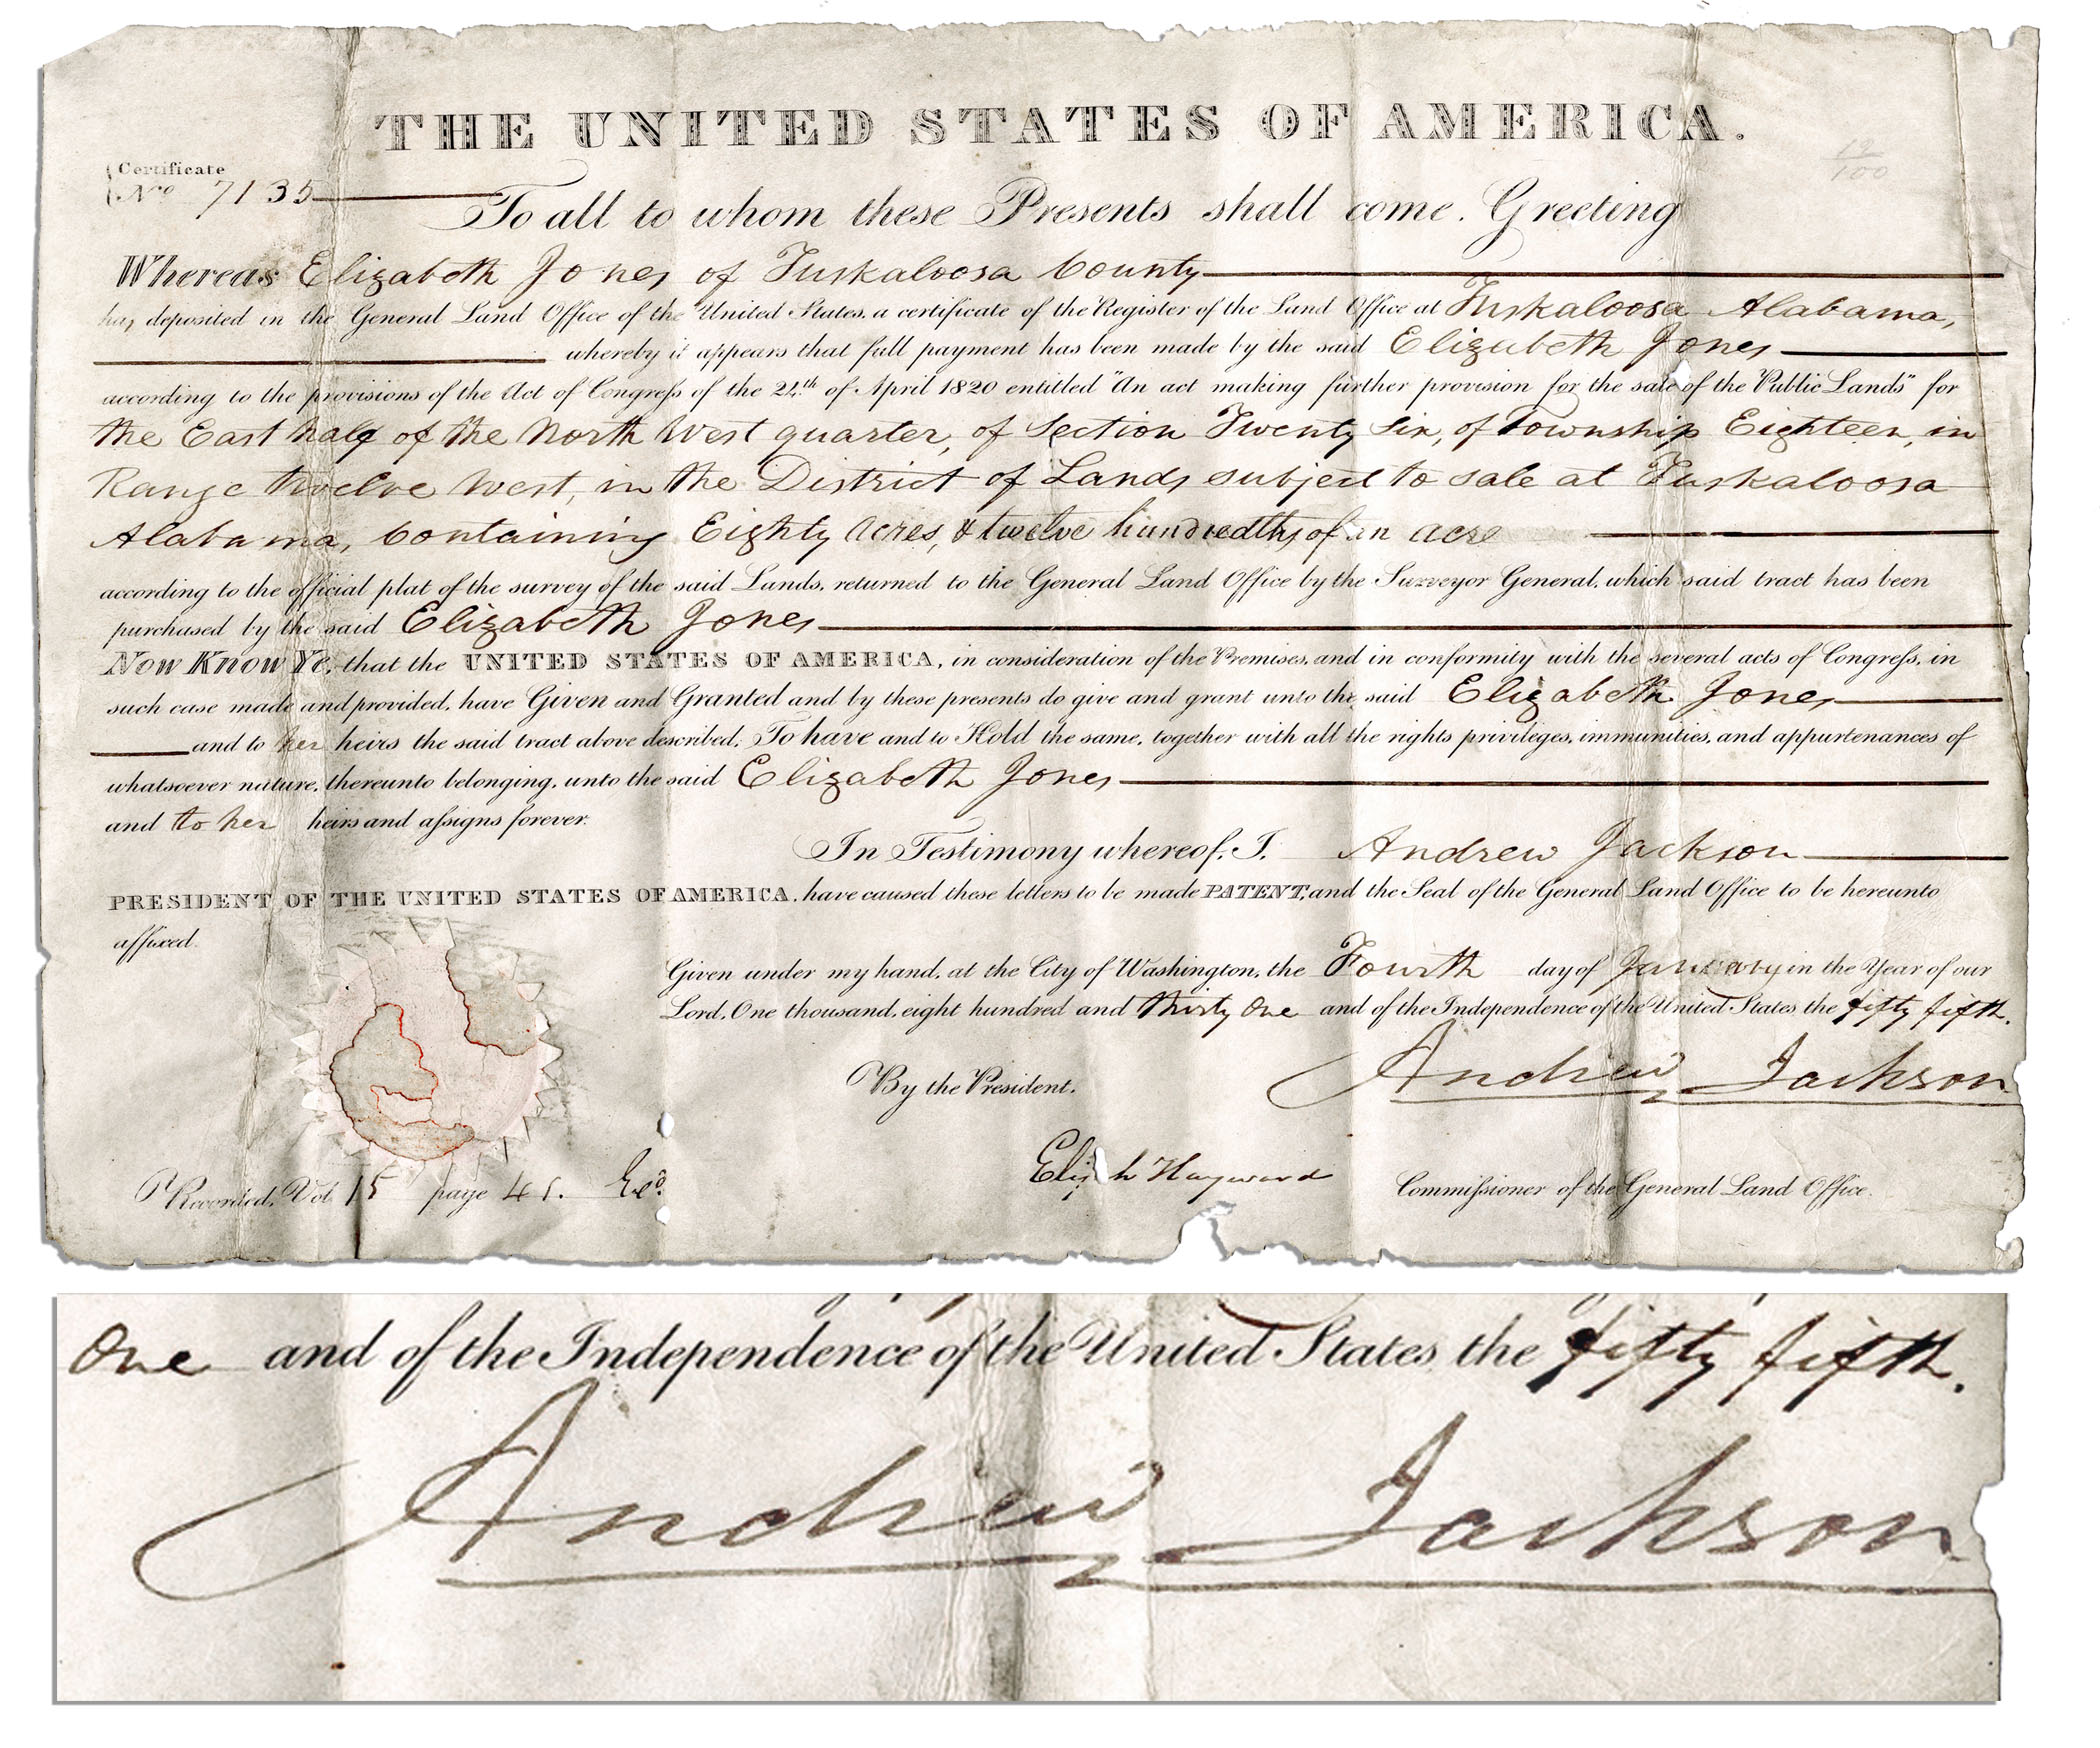 THE UNITED STATES OF AMERICA.
12
100
Certificate
No 7135
To all to whom these Presents shall come. Greeting
Whereas Elizabeth Jones of Tuskaloosa County
has deposited in the General Land Office of the United States, a certificate of the Register of the Land Office at Tuskaloosa Alabama,
whereby it appears that full payment has been made by the said Elizabeth Jones
according to the provisions of the Act of Congress of the 24th of April 1820 entitled "An act making further provision for the sale of the Public Lands" for
the East half of the North West quarter, of Section Twenty Six, of Township Eighteen, in
Range twelve West, in the District of Lands subject to sale at Tuskaloosa
Alabama, Containing Eighty Acres, & twelve hundredths of an acre
according to the official plat of the survey of the said Lands, returned to the General Land Office by the Surveyor General, which said tract has been
purchased by the said Elizabeth Jones
Now Know Ye, that the UNITED STATES OF AMERICA, in consideration of the Premises, and in conformity with the several acts of Congress, in
such case made and provided, have Given and Granted and by these presents do give and grant unto the said Elizabeth Jones
and to her heirs the said tract above described; To have and to Hold the same, together with all the rights privileges, immunities, and appurtenances of
whatsoever nature, thereunto belonging, unto the said Elizabeth Jones
and to her heirs and assigns forever.
In Testimony whereof, I. Andrew Jackson
PRESIDENT OF THE UNITED STATES OF AMERICA, have caused these letters to be made PATENT, and the Seal of the General Land Office to be hereunto
affixed.
Given under my hand, at the City of Washington, the Fourth day of January in the Year of our
Lord, One thousand, eight hundred and thirty One and of the Independence of the United States the fifty fifth.
Andrew Jackson
By the President.
Elijah Hayward Commissioner of the General Land Office.
Recorded, Vol 15 page 41.
One and of the Independence of the United States the fifty fifth.
Andrew Jackson